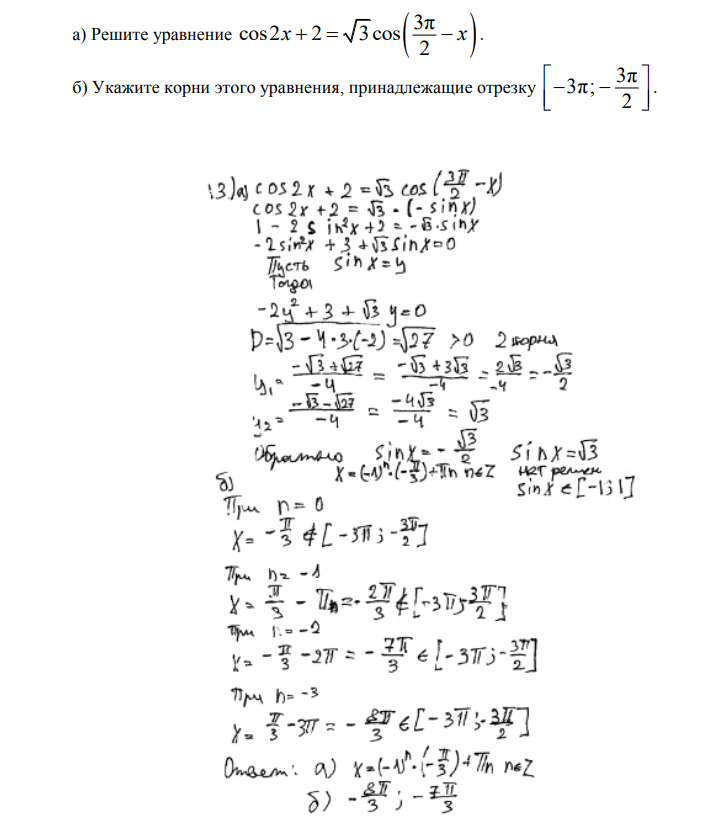 а) Решите уравнение cos2x + 2 = √3cos(3π/2 − x).
б) Укажите корни этого уравнения, принадлежащие отрезку [−3π; −3π/2].
13)а) cos2x + 2 = √3 cos(3π/2 - x)
cos2x + 2 = √3 · (- sinx)
1 - 2sin²x + 2 = -√3·sinx
-2sin²x + 3 + √3sinx = 0
Пусть sinx = y
Тогда
-2y² + 3 + √3 y = 0
D = √3 - 4·3·(-2) = √27 > 0 2 корня
y₁ = (-√3 + √27)/-4 = (-√3 + 3√3)/-4 = 2√3/-4 = -√3/2
y₂ = (-√3 - √27)/-4 = -4√3/-4 = √3
Обратно sinx = -√3/2 sinx = √3
x = (-1)ⁿ·(-π/3) + πn n∈Z нет решен
sinx ∈ [-1; 1]
б)
При n = 0
x = -π/3 ∉ [-3π; -3π/2]
При n = -1
x = π/3 - π = -2π/3 ∉ [-3π; -3π/2]
При n = -2
x = -π/3 - 2π = -7π/3 ∈ [-3π; -3π/2]
При n = -3
x = π/3 - 3π = -8π/3 ∈ [-3π; -3π/2]
Ответ: а) x = (-1)ⁿ·(-π/3) + πn n∈Z
б) -8π/3; -7π/3